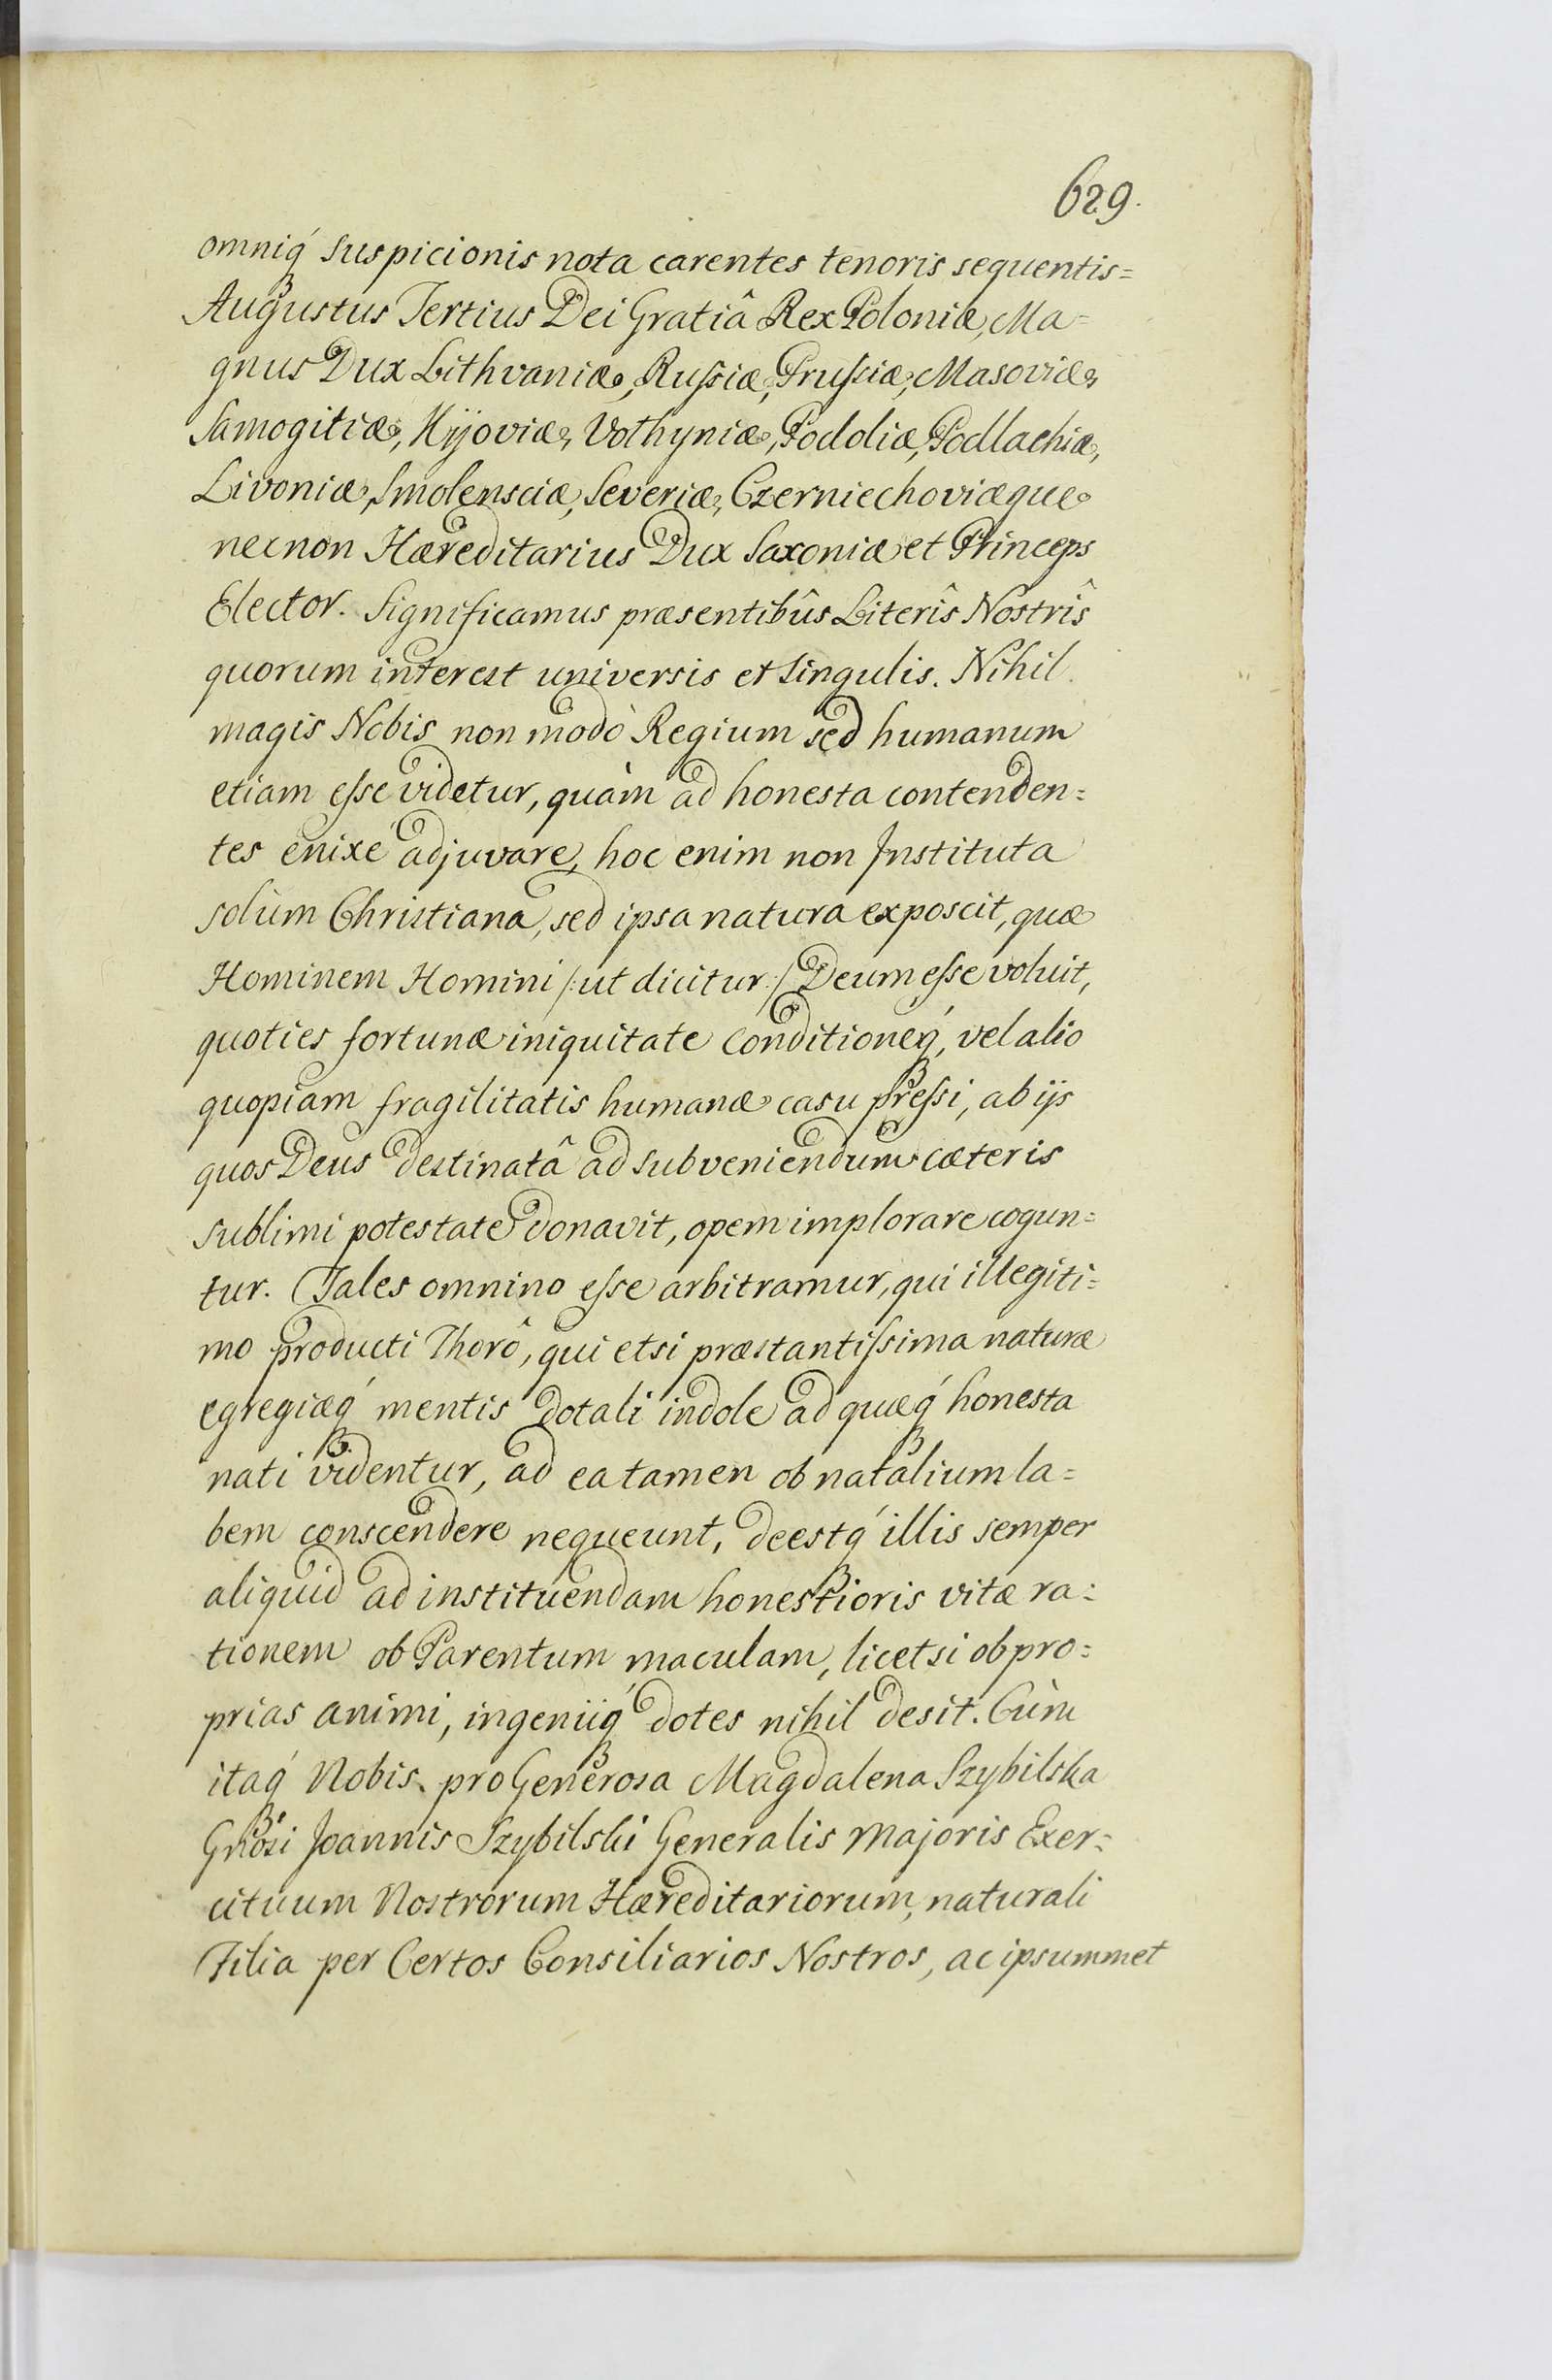 629.
omniq́ suspicionis nota carentes tenoris sequentis=
Augustus Tertius Dei Gratiâ Rex Poloniæ, Ma=
gnus Dux Lithvaniæ, Rußiæ, Prußiæ, Masoviæ,
Samogitiæ, Kijoviæ, Volhyniæ, Podoliæ, Podlachiæ,
Livoniæ, Smolensciæ, Severiæ, Czerniechoviæque
necnon Hæreditarius Dux Saxoniæ et Princeps
Elector. Significamus præsentibûs Literîs Nostrîs
quorum interest universis et singulis. Nihil
magis Nobis non modò Regium sed humanum
etiam eſse videtur, quàm ad honesta contenden=
tes enixé adjuvare, hoc enim non Instituta
solùm Christiana, sed ipsa natura exposcit, quæ
Hominem Homini /:ut dicitur:/ Deum eſse voluit,
quoties fortunæ iniquitate conditioneq́, vel alio
quopiam fragilitatis humanæ casu preſsi, ab ijs
quos Deus destinatâ ad subveniendum cæteris
sublimi potestate donavit, opem implorare cogun=
tur. Tales omnino eſse arbitramur, qui illegiti=
mo producti Thorô, qui etsi præstantiſsima naturæ
egregiæq́ mentis dotali indole ad quæq́ honesta
nati videntur, ad ea tamen ob natalium la=
bem conscendere nequeunt, deestq́ illis semper
aliquid ad instituendam honestioris vitæ ra=
tionem ob Parentum maculam, licetsi ob pro=
prias animi, ingeniiq́ dotes nihil desit. Cùm
itaq́ Nobis pro Generosa Magdalena Szybilska
Gnosi Joannis Szybilski Generalis Majoris Exer=
cituum Nostrorum Hæreditariorum, naturali
Filia per Certos Consiliarios Nostros, ac ipsummet